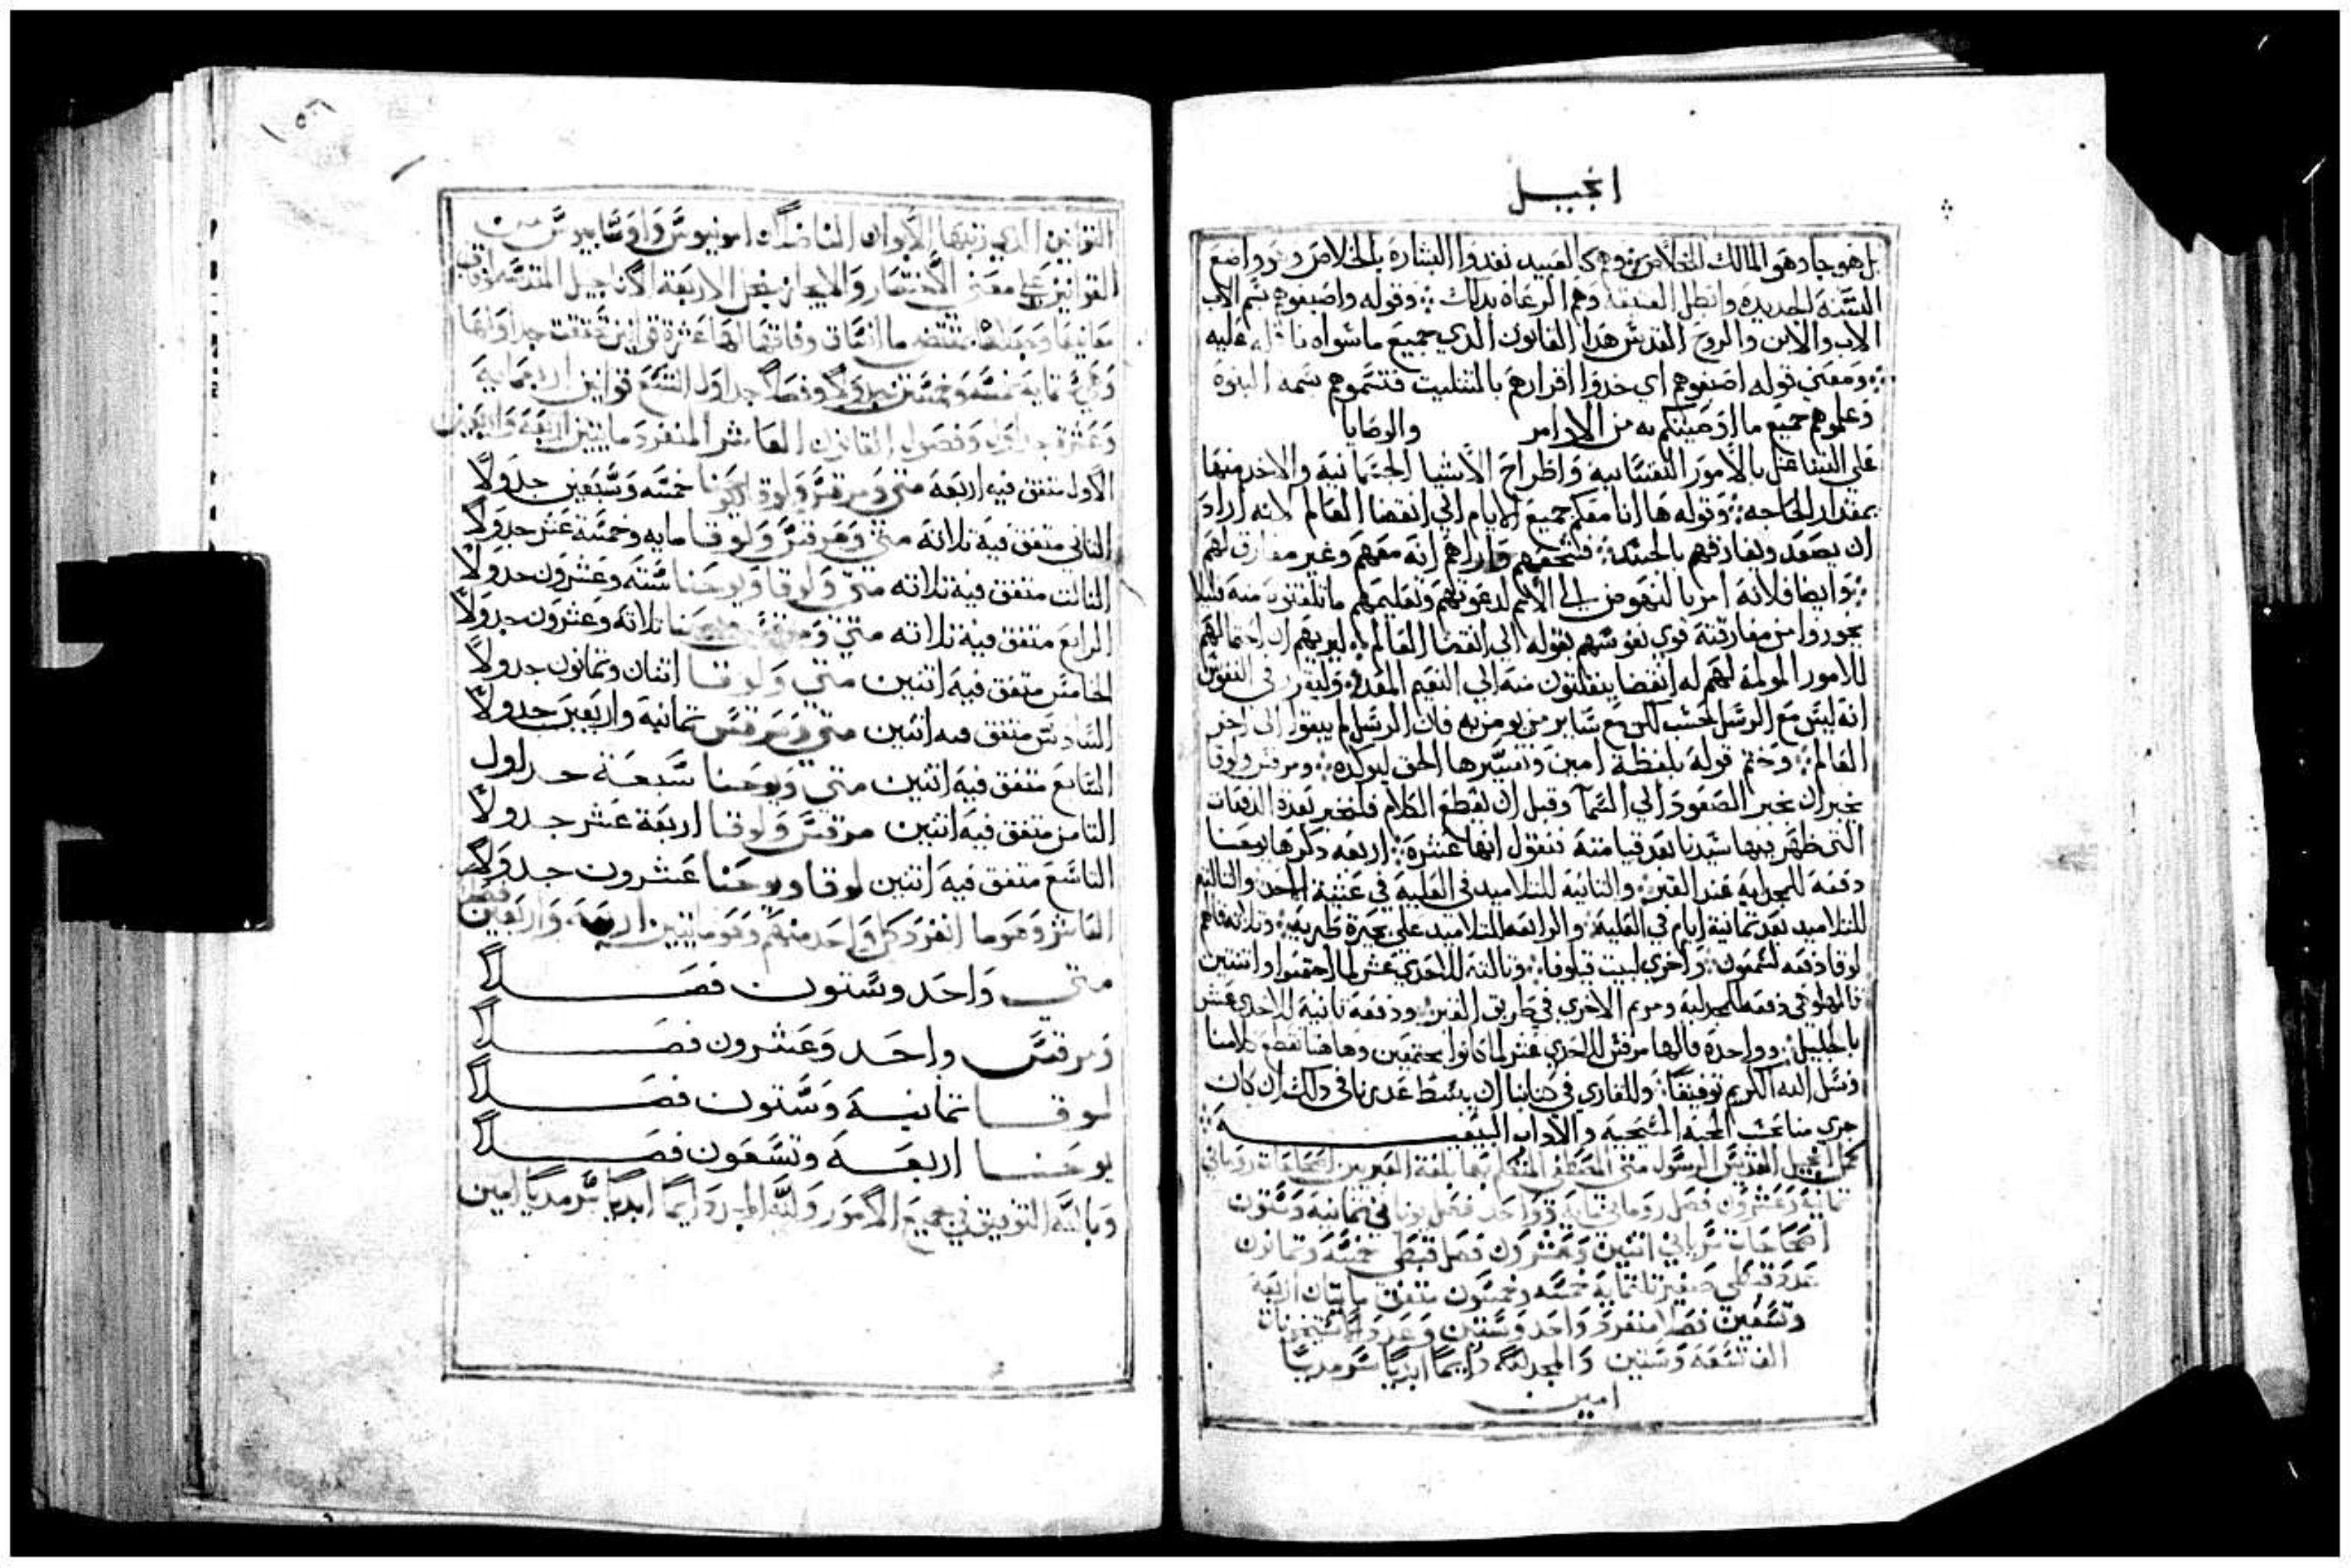 انجيل
بل هو جا وهو المالك للخلاص وهم كالعبيد نفدوا البشارة بالخلاص وهو واضع
السنة الجديده وابطل العتيقة وهم الرعاة بدلك وقوله واصبغوهم بسم الاب
الاب والابن والروح القدس هدا القانون الدي جميع ما سواه باطل عليه
ومعني قوله اصبغوهم اي خدوا اقرارهم بالتتليت فتسموهم بسمة البنوة
وعلموهم جميع ما اوصيتكم به من الاوامر والوصايا
علي التشاغل بالامور النفسانيه واطراح الاشيا الجسمانية والاخد منها
بمقدار الحاجه وقوله ها انا معكم جميع الايام الي انقضا العالم لانه اراد
ان يصعد ويفارقهم بالجسد فشجعهم واراهم انه معهم وغير مفارق لهم
وايضا فلانه امر بالنهوض الي الامم لدعوتهم وتعليمهم ما تلقنوه منه فليلا
يجوروا من مفارقته قوي نفوسهم بقوله الي انقضا العالم ليريهم ان احتمالهم
للامور المولمة لهم له انقضا ينقلتون منه الي النعيم المعد وليقرر في النفوس
انه ليس مع الرسل فحسب لكن مع ساير من يومن به فان الرسل لم يبقوا الي اخر
العالم وختم قوله بلفظة امين وتفسيرها الحق ليوكده ومرقس ولوقا
يخبران بخبر الصعود الي السما وقبل ان نقطع الكلام فلنخبر بعدة الدفعات
التي ظهر فيها سيدنا بعد قيامته فنقول انها عشرة اربعه دكرها يوحنا
دفعة للمجدليه عند القبر والتانية للتلاميد في العليه في عشية الاحد والتالته
للتلاميد بعد تمانية ايام في العلية والرابعه للتلاميد علي بحيرة طبريه وتلاته قالهم
لوقا دفعه لشمعون واخري لبيت قيلوفا وتالته للاحدي عشر لما اجتمعوا واتنتين
قالهما متي دفعه للمجدلية ومريم الاخري في طريق القبر ودفعة تانية للاحدي عشر
بالجليل وواحدة قالها مرقس للاحدي عشر لما كانوا مجتمعين وهاهنا نقطع كلامنا
ونسل الله الكريم توفيقا وللقاري في كتابنا ان يبسط عدرنا في دلك ان كان
جري منا بحسب المحبة المسيحية والاداب البيعيه
كمل انجيل القديس الرسول متي المصطفي المتكلم بها بلغة العبريين اصحاحاته روماني
تمانية وعشرون فصل روماني تلتماية وواحد فصل يوناني تمانية وستون
اصحاحات سرياني اتنين وعشرون فصل قبطي خمسة وتمانون
عدد قبطي صغير تلتماية خمسه وخمسون متفق مايتان اربعة
وتسعين فصلا منفرد واحد وستين وعدد الاستيخونات
الف تسعة وستين والمجد لله دايما ابديا سرمديا
امين
القوانين الدي رتبها الاخوان الفاضلان امونيوس واوسابيوس من
القوانين علي معني الاختصار والايجاز بجعل الاربعة الاناجيل المقدسة
معانيها وجعلاها بمقتضي ما اتفاق وفاقها لها عشرة قوانين تحققت جداولها
وهي تماية خمسة وخمسين جدولا وفصلا جداول التسع قوانين اربعماية
وعشرة جداول وفصول القانون العاشر المنفرد مايتين اربعة واربعين
الاول متفق فيه اربعة متي ومرقس ولوقا ويوحنا خمسة وسبعين جدولا
التاني متفق فيه تلاتة متي ومرقس ولوقا مايه وخمسة عشر جدولا
التالت متفق فيه تلاته متي ولوقا ويوحنا ستة وعشرون جدولا
الرابع متفق فيه تلاته متي ومرقس ويوحنا تلاتة وعشرون جدولا
الخامس متفق فيه اتنين متي ولوقا اتنان وتمانون جدولا
السادس متفق فيه اتنين متي ومرقس تمانية واربعين جدولا
السابع متفق فيه اتنين متي ويوحنا سبعة جداول
التامن متفق فيه اتنين مرقس ولوقا اربعة عشر جدولا
التاسع متفق فيه اتنين لوقا ويوحنا عشرون جدولا
العاشر وهو ما انفرد كل واحد منهم وهو مايتين اربعة واربعين فصل
متي واحد وستون فصلا
ومرقس واحد وعشرون فصلا
لوقا تمانية وستون فصلا
يوحنا اربعة وتسعون فصلا
وبالله التوفيق في جميع الامور ولله المجد دايما ابديا سرمديا امين